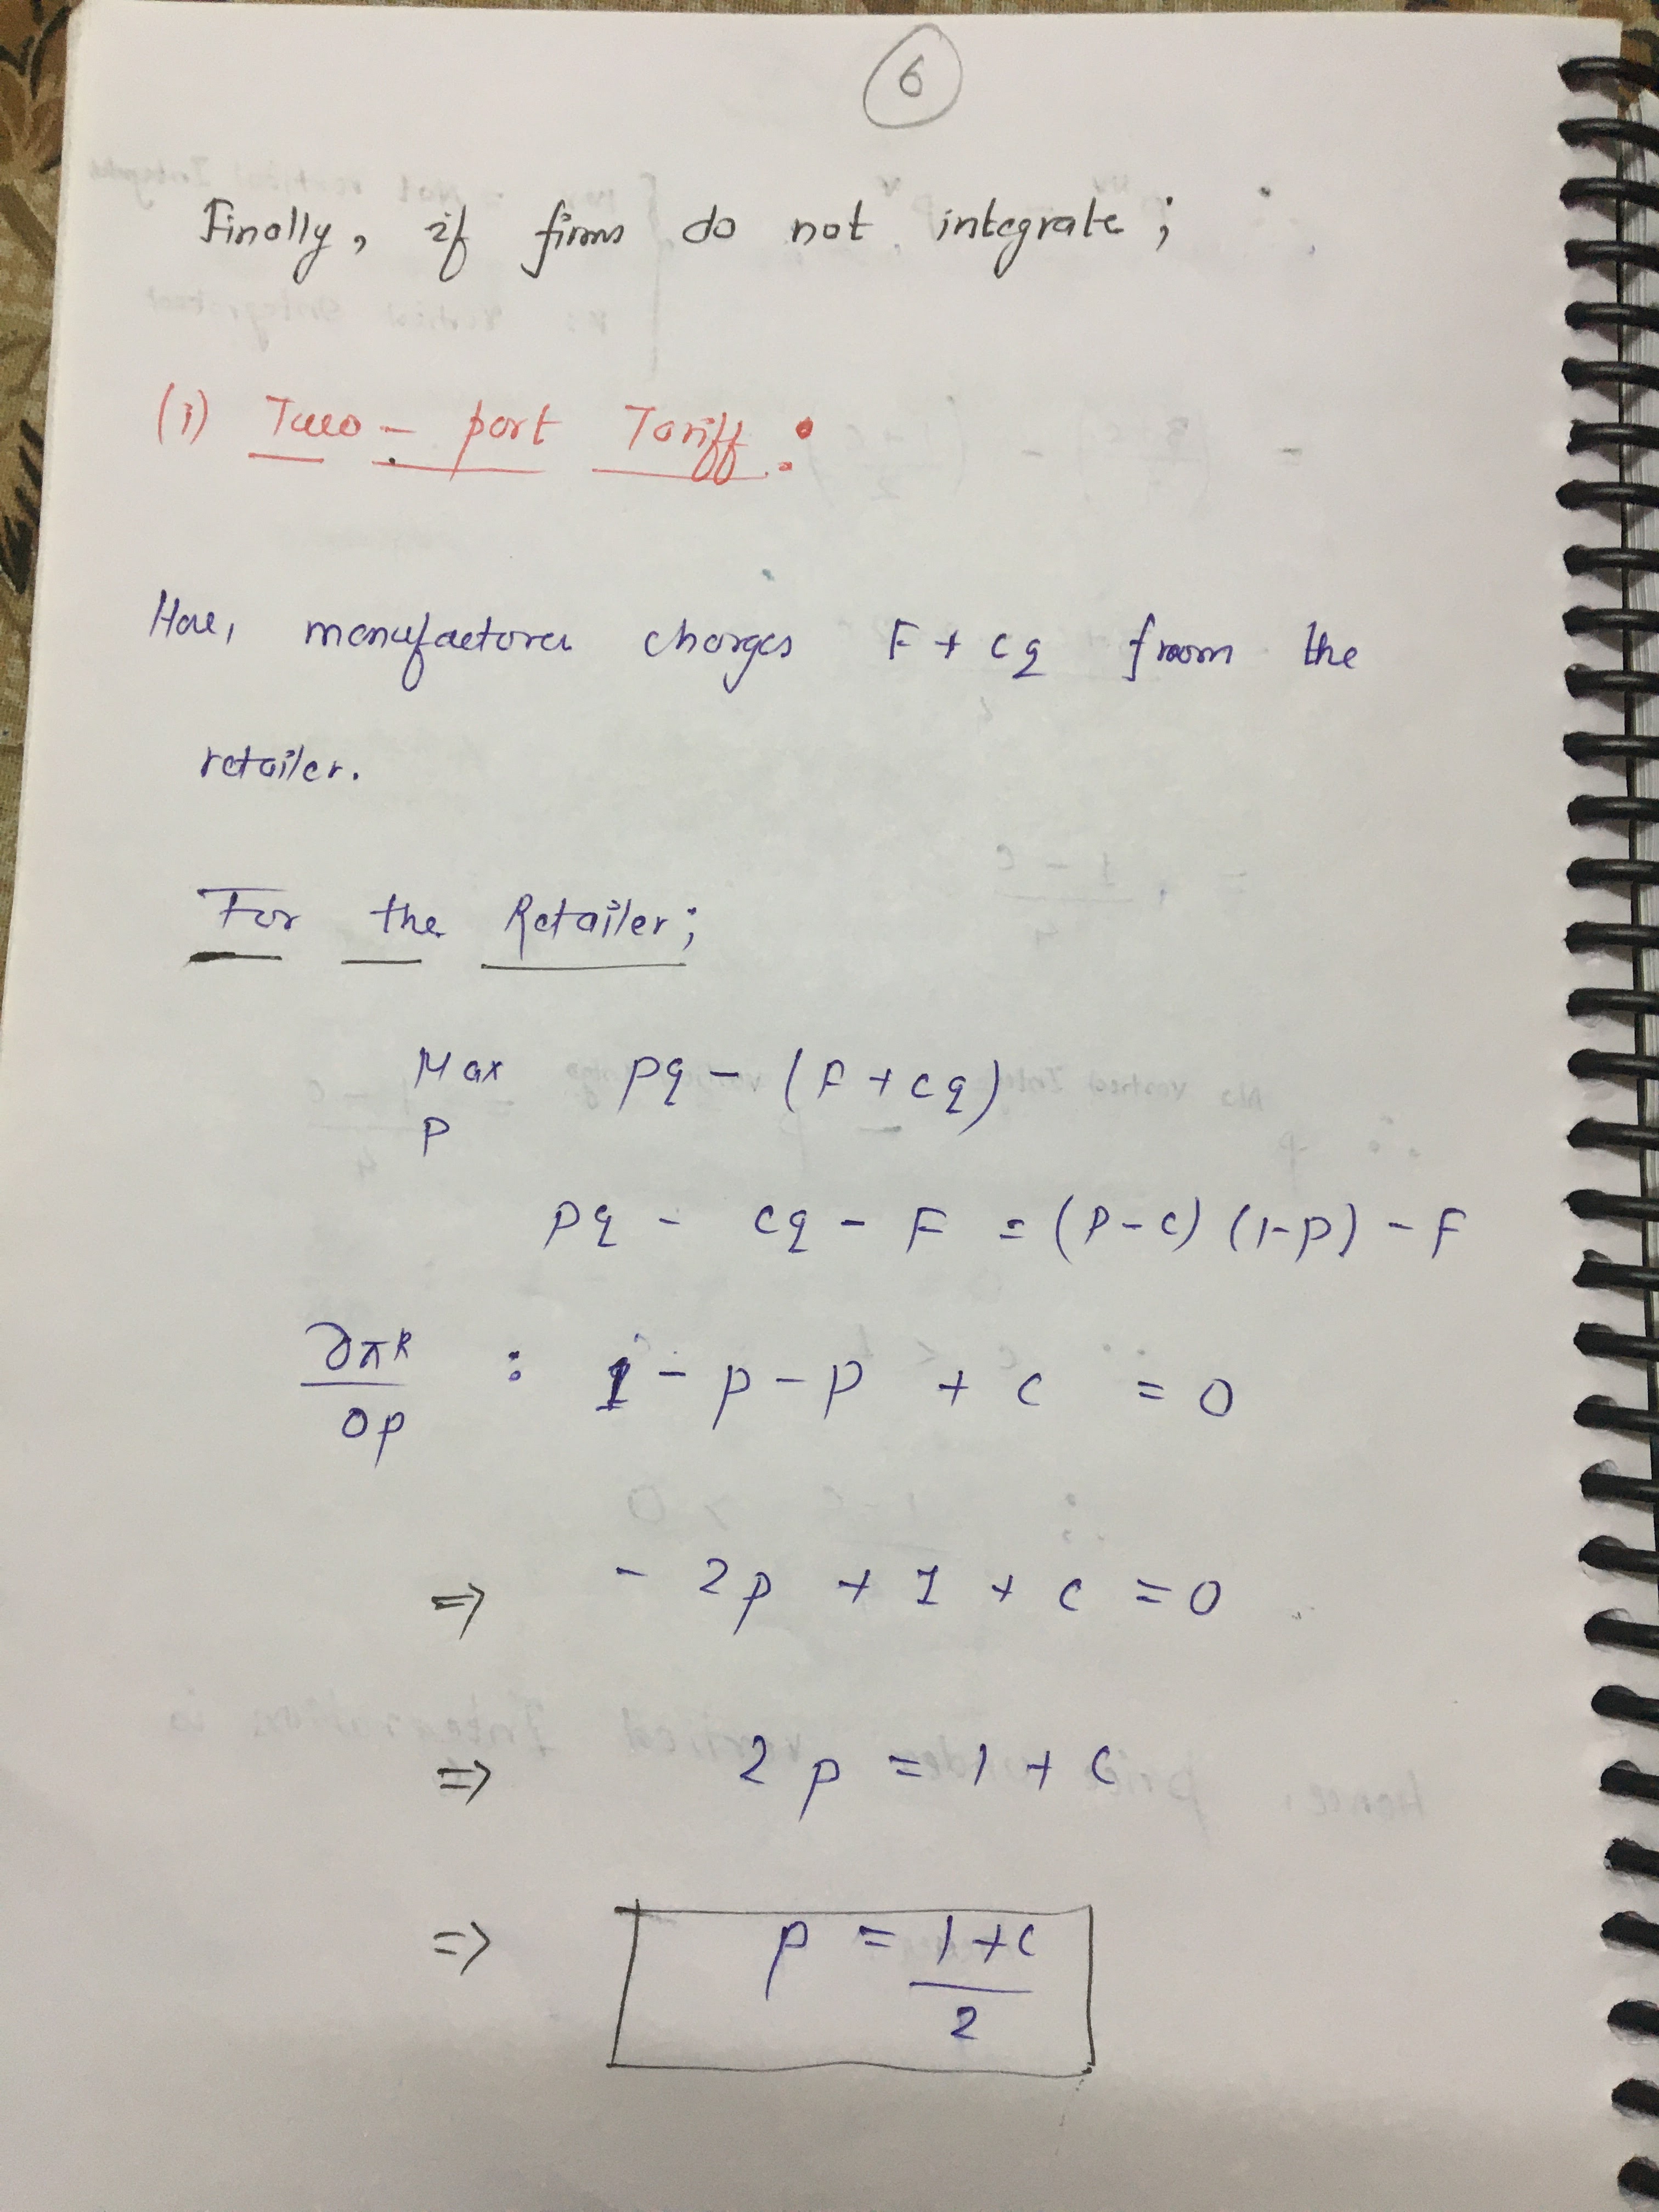 6
Finally, if firms do not integrate;
(i) Two - part Tariff :
Here, manufacturer charges F + cq from the
retailer.
For the Retailer;
Max pq - (F + cq)
p
pq - cq - F = (p-c) (1-p) - F
∂π^R / ∂p : 1 - p - p + c = 0
=> - 2p + 1 + c = 0
=> 2p = 1 + c
=> p = 1+c / 2